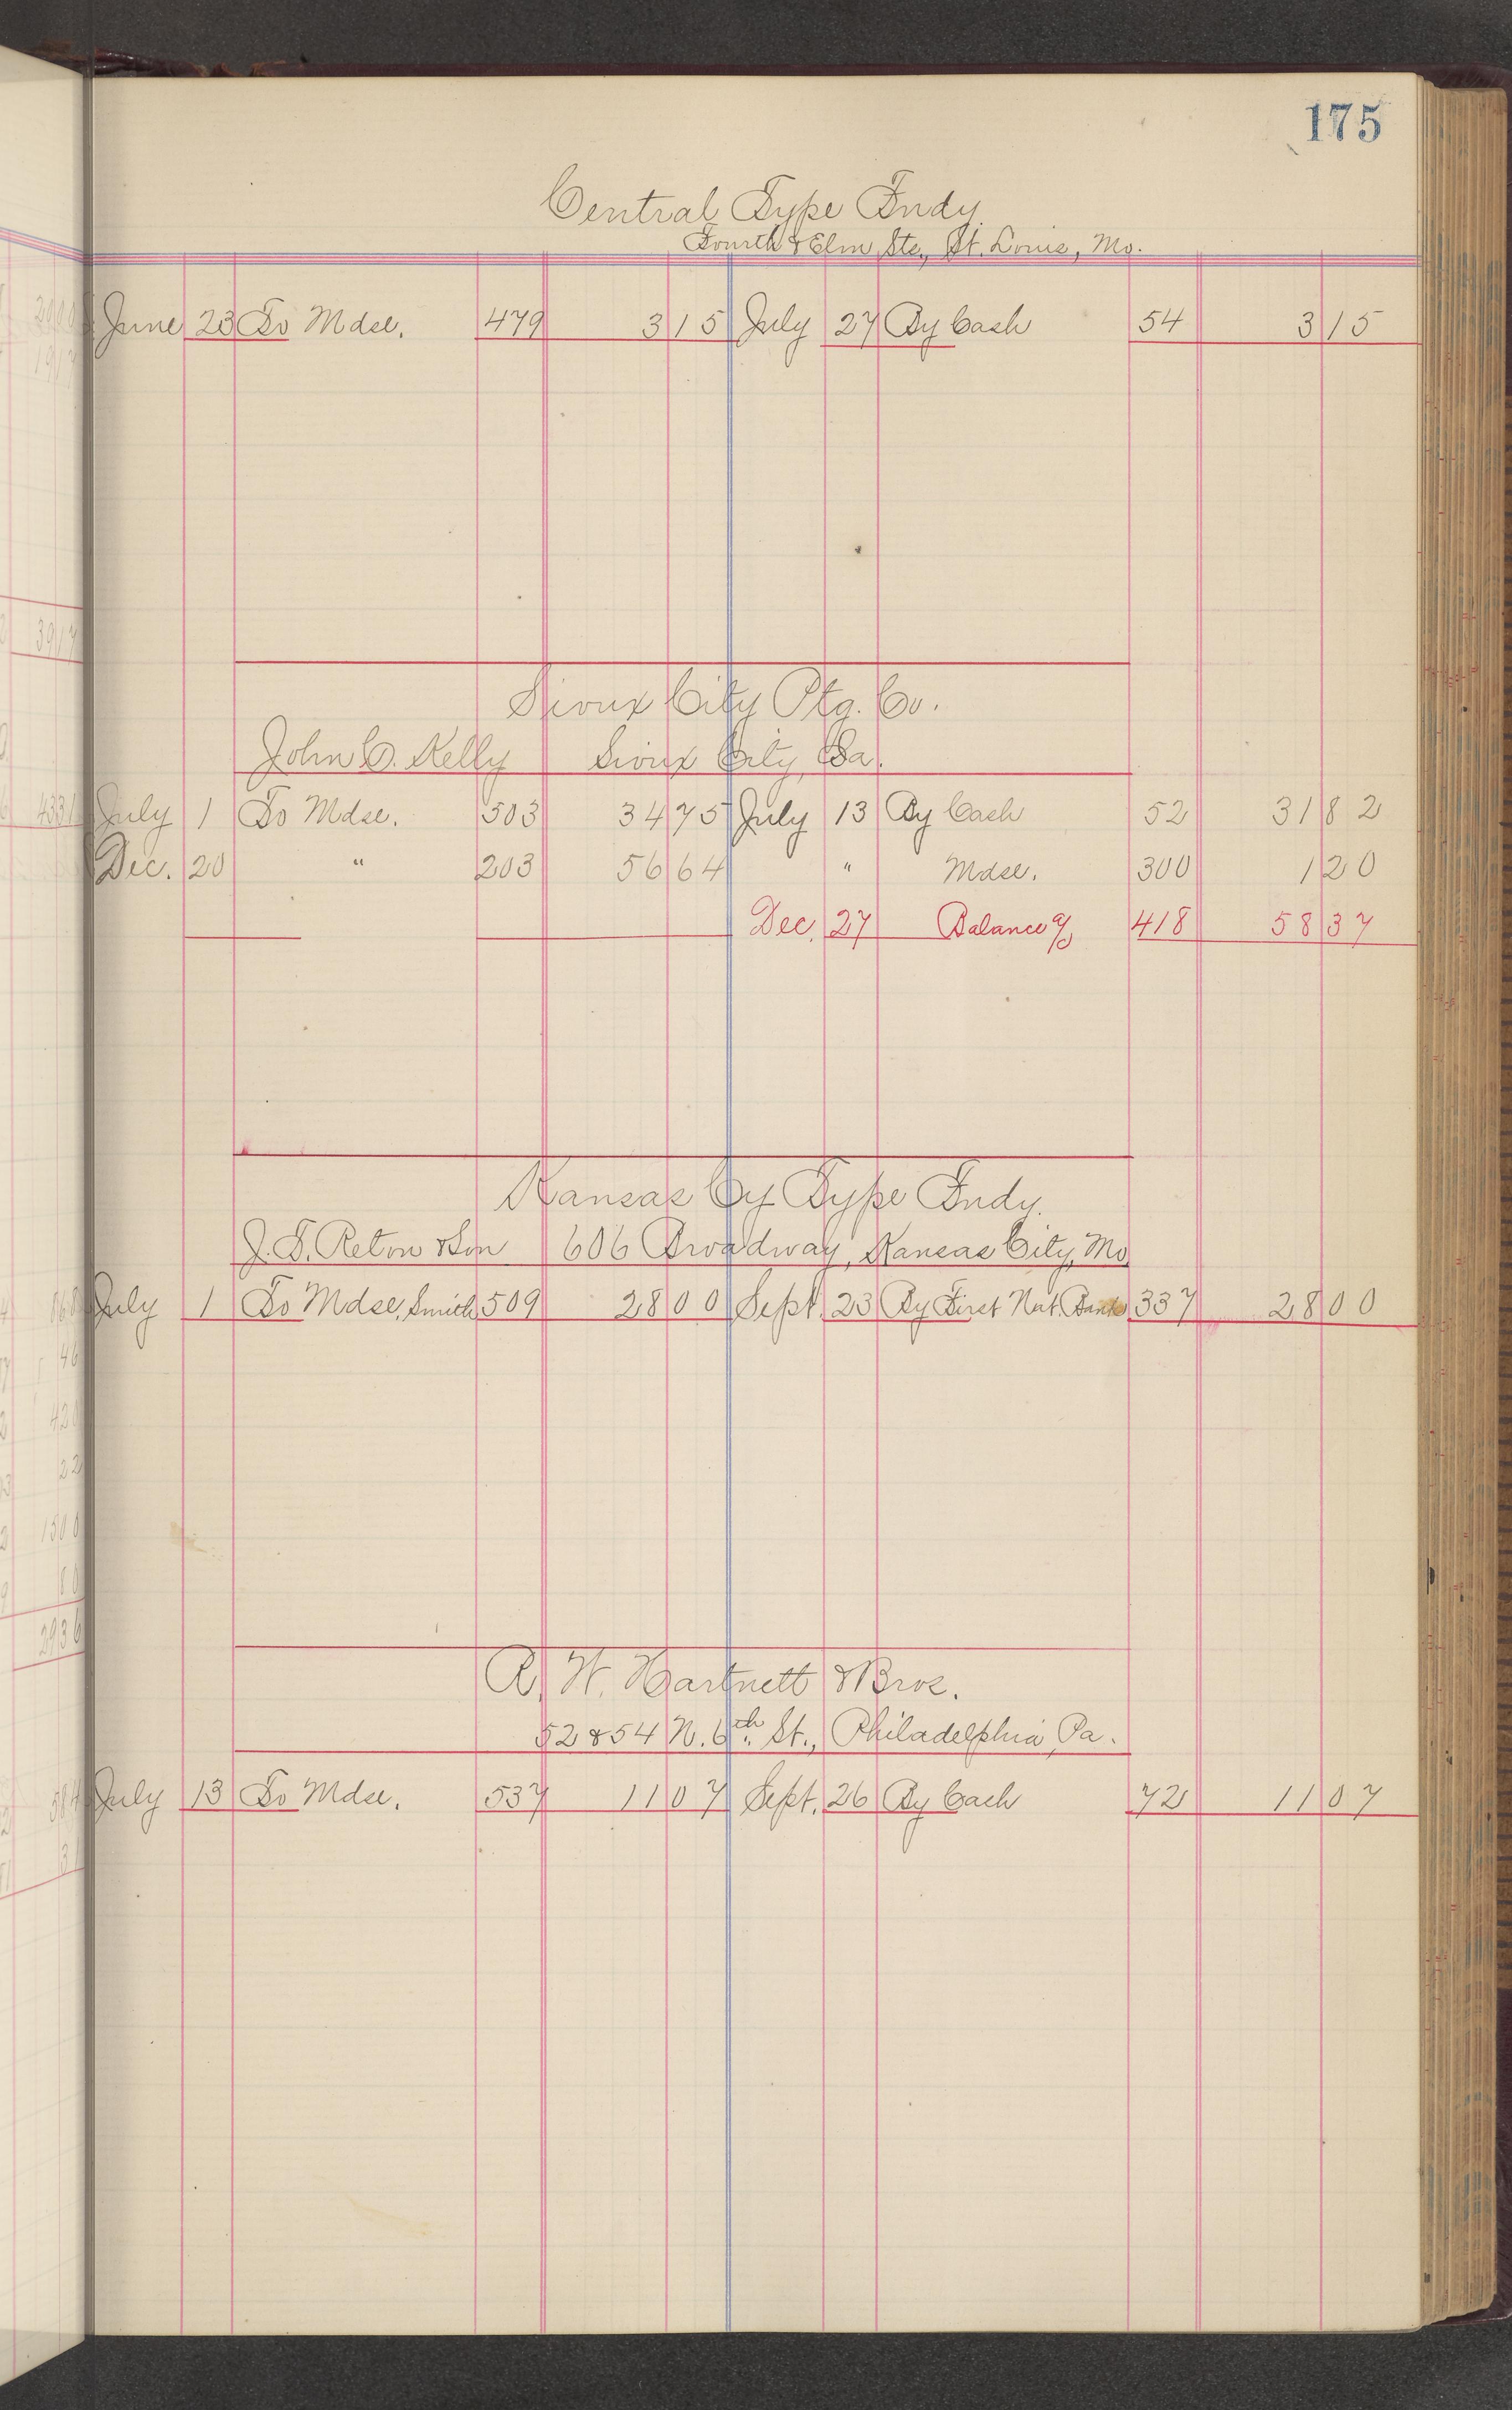 175
Central Type Fndy.
Fourth & Elm Sts., St. Louis, Mo.
June 23 To Mdse. 479 3 15 July 27 By Cash 54 3 15
Sioux City Ptg. Co.
John C. Kelly Sioux City, Ia.
July 1 To Mdse. 503 34 75 July 13 By Cash 52 31 82
Dec. 20 " 203 56 64 " Mdse. 300 1 20
Dec. 27 Balance % 418 58 37
Kansas Cy Type Fndy.
J. T. Reton & Son 606 Broadway, Kansas City, Mo.
July 1 To Mdse, Smith 509 28 00 Sept. 23 By First Nat. Bank 337 28 00
R. W. Hartnett & Bros.
52 & 54 N. 6th. St., Philadelphia, Pa.
July 13 To Mdse. 537 11 07 Sept. 26 By Cash 72 11 07